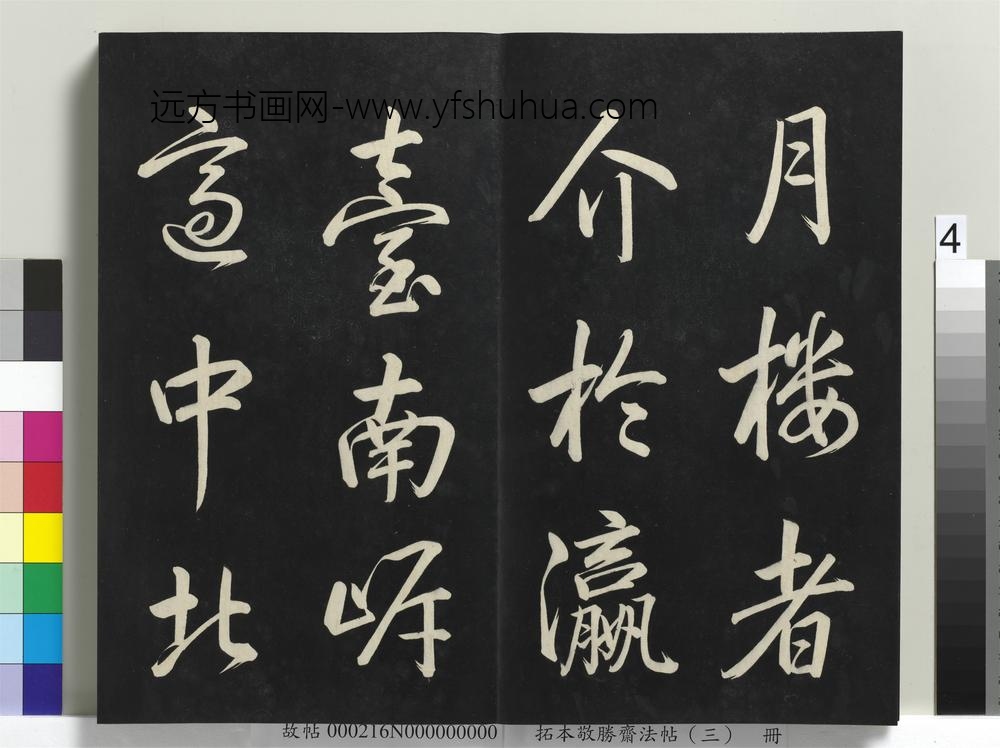 远方书画网-www.yfshuhua.com
月楼者
介於瀛
臺南岸
適中北
4
故帖 000216N000000000 拓本敬勝齋法帖（三） 冊